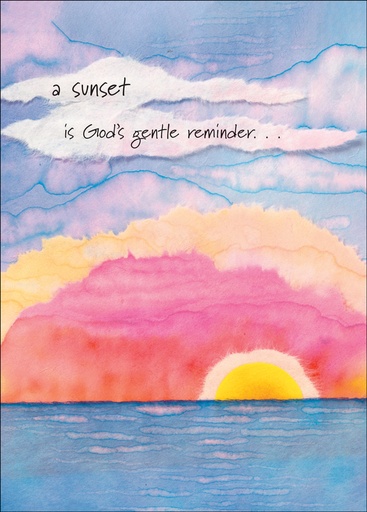 a sunset
is God's gentle reminder. . .